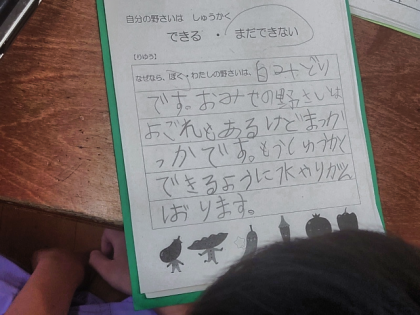 自分の野さいは しゅうかく
できる ・ まだできない
【りゆう】
なぜなら、ぼく・わたしの野さいは、白みどり
です。おみせの野さいは
よごれもあるけどまっか
っかです。もうしゅうかく
できるように水やりがん
ばります。